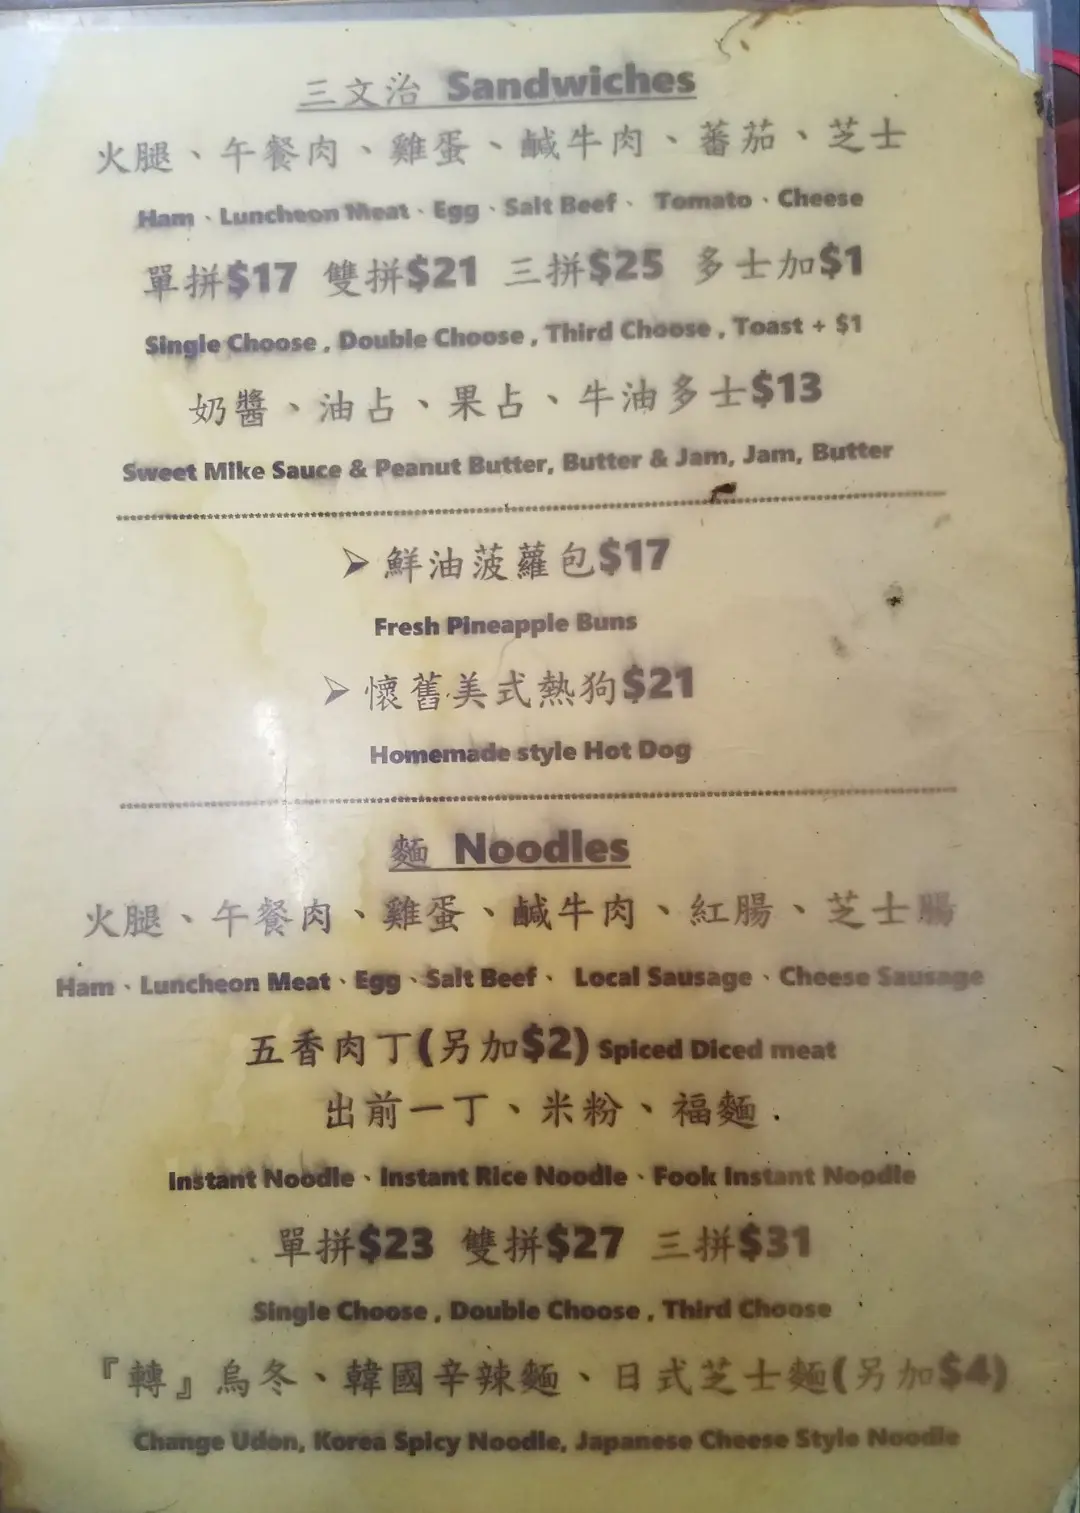 三文治 Sandwiches
火腿、午餐肉、雞蛋、鹹牛肉、蕃茄、芝士
Ham、Luncheon Meat、Egg、Salt Beef、 Tomato、Cheese
單拼$17 雙拼$21 三拼$25 多士加$1
Single Choose , Double Choose , Third Choose , Toast + $1
奶醬、油占、果占、牛油多士$13
Sweet Mike Sauce & Peanut Butter, Butter & Jam, Jam, Butter
➢ 鮮油菠蘿包$17
Fresh Pineapple Buns
➢ 懷舊美式熱狗$21
Homemade style Hot Dog
麵 Noodles
火腿、午餐肉、雞蛋、鹹牛肉、紅腸、芝士腸
Ham、Luncheon Meat、Egg、Salt Beef、 Local Sausage、Cheese Sausage
五香肉丁(另加$2) Spiced Diced meat
出前一丁、米粉、福麵.
Instant Noodle、Instant Rice Noodle、Fook Instant Noodle
單拼$23 雙拼$27 三拼$31
Single Choose , Double Choose , Third Choose
『轉』烏冬、韓國辛辣麵、日式芝士麵(另加$4)
Change Udon, Korea Spicy Noodle, Japanese Cheese Style Noodle